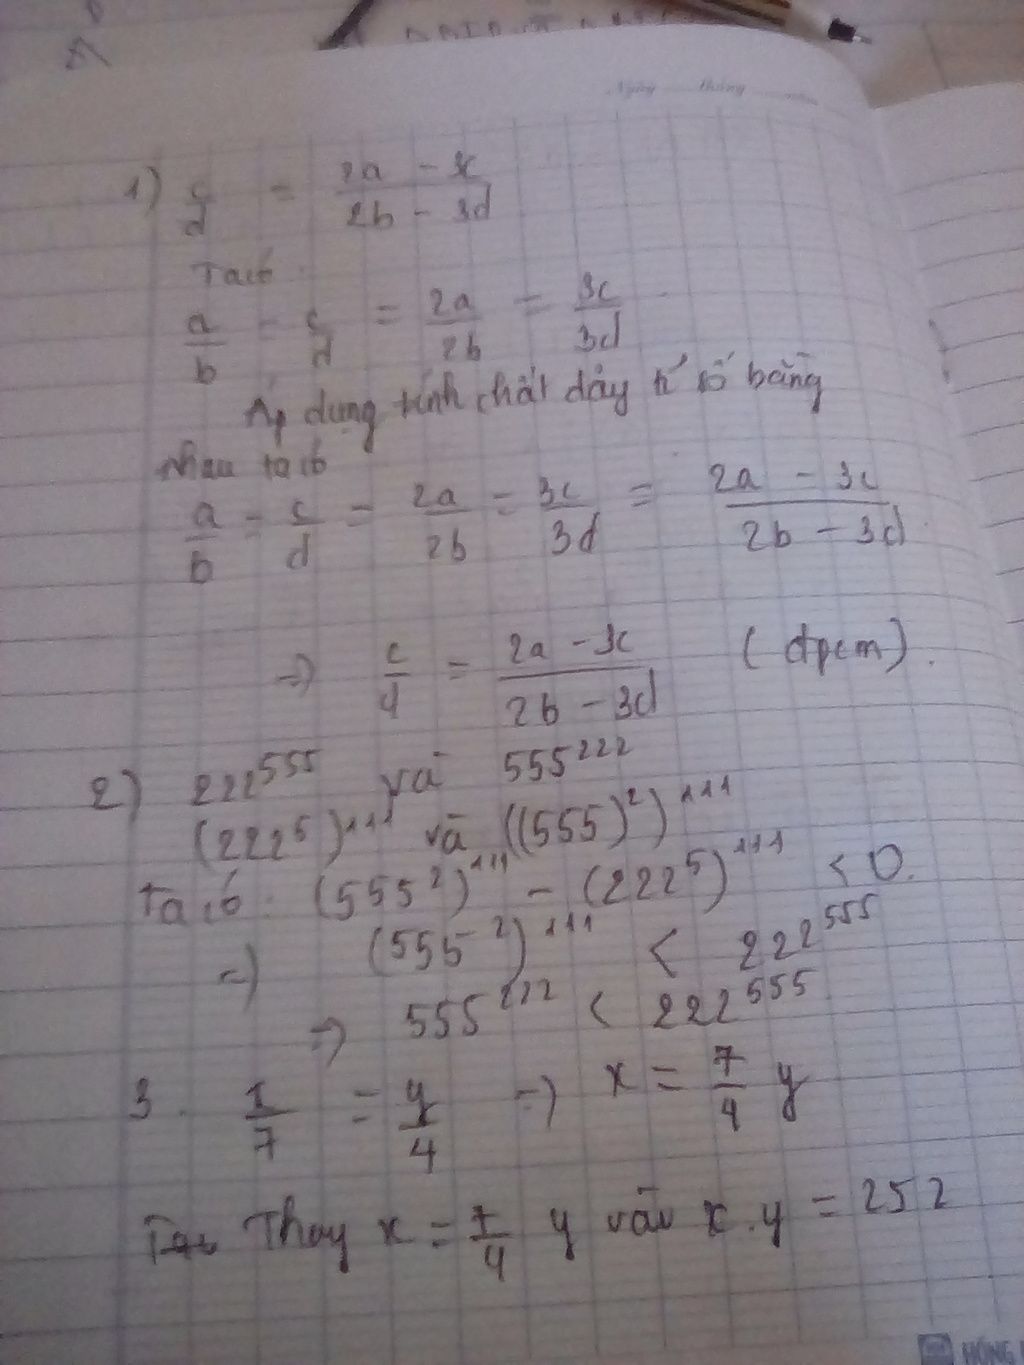 Ngày ..... tháng .....
1) c/d = (2a - 3c)/(2b - 3d)
Ta có
a/b = c/d = 2a/2b = 3c/3d
Áp dụng tính chất dảy tỉ số bằng
nhau ta có
a/b = c/d = 2a/2b = 3c/3d = (2a - 3c)/(2b - 3d)
=> c/d = (2a - 3c)/(2b - 3d) (đpcm).
2) 222^555 và 555^222
(222^5)^111 và ((555)^2)^111
Ta có: (555^2)^111 - (222^5)^111 < 0.
=> (555^2)^111 < 222^555
=> 555^222 < 222^555
3. x/7 = y/4 => x = 7/4 y
Thay x = 7/4 y vào x.y = 252
HỒNG